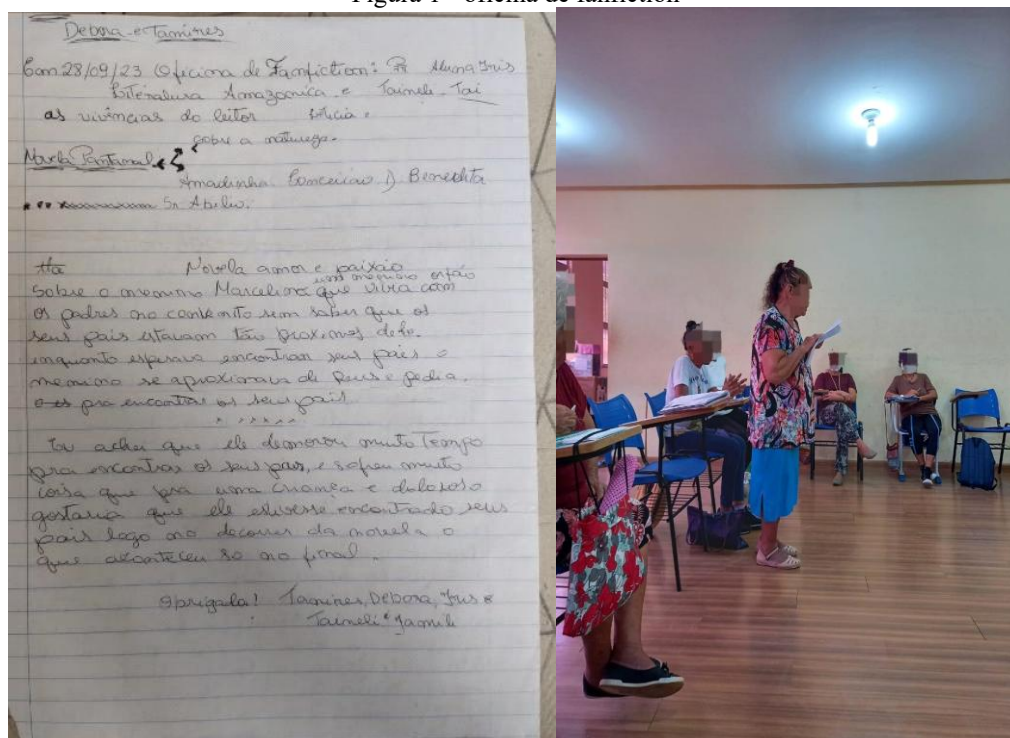 Figura 1 - oficina de fanfiction
Debora e Tamires
28/09/23 Oficina de Fanfiction: Aluna Iris
Literatura Amazonica e Taineli-Tai
as vivências do leitor
sobre a natureza.
Pantanal
Amadinha Conceicao Benedita
Sr Abilio.
Novela amor e paixão
um menino orfão
sobre o menino Marcelino que vivia com
os padres no convento sem saber que os
seus pais estavam tão proximos dele.
inquanto esperava encontrar seus pais o
menino se aproximava de Deus e pedia.
pra encontrar os seus pais
Eu achei que ele demorou muito Tempo
pra encontrar os seus pais, e sofreu muito
coisa que pra uma criança e doloroso
gostaria que ele estivesse encontrado seus
pais logo no decorrer da novela o
que aconteceu so no final.
Obrigada! Tamires, Debora, Iris e
Taineli e Jamile